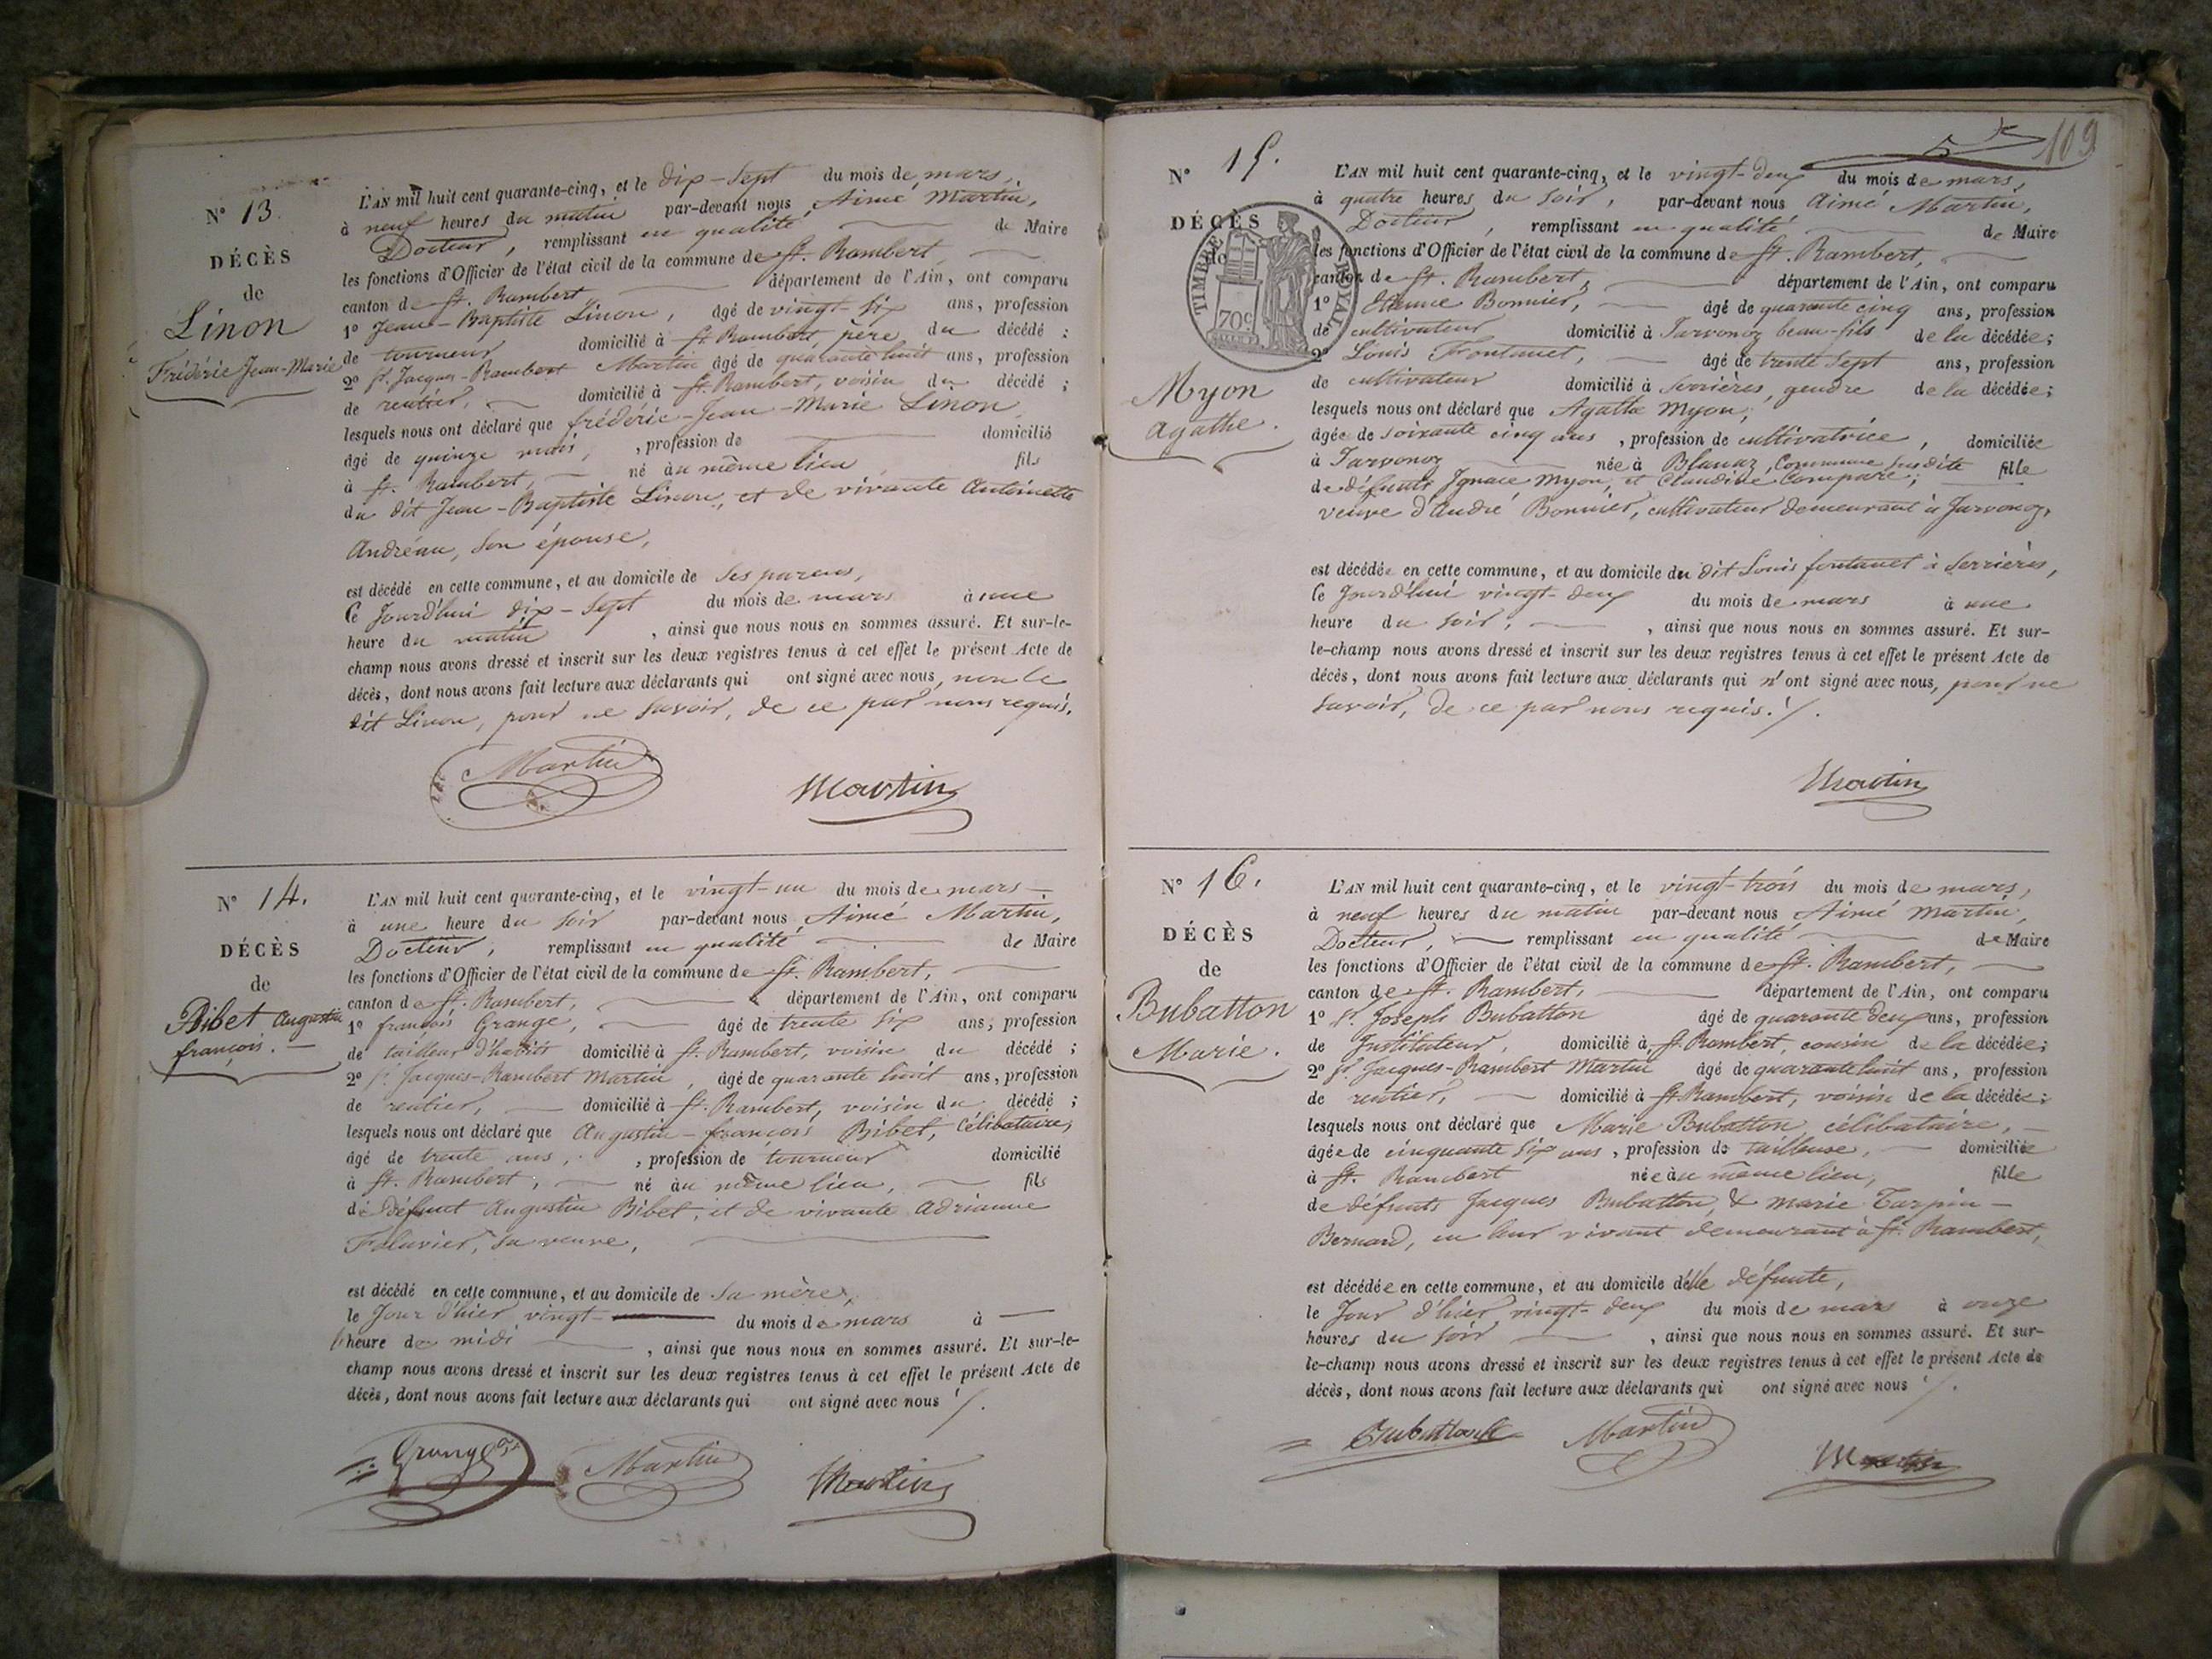 N° 13
DÉCÈS
de
Linon
Frédéric Jean-Marie
L'AN mil huit cent quarante-cinq, et le dix-sept du mois de mars,
à neuf heures du matin par-devant nous Aimé Martin,
Docteur, remplissant en qualité de Maire
les fonctions d'Officier de l'état civil de la commune de St. Rambert,
canton de St. Rambert département de l'Ain, ont comparu
1° Jean-Baptiste Linon, âgé de vingt-six ans, profession
de tourneur domicilié à St Rambert, père du décédé ;
2° Sr. Jacques-Rambert Martin âgé de quarante huit ans, profession
de rentier, domicilié à St. Rambert, voisin du décédé ;
lesquels nous ont déclaré que frédéric-Jean-Marie Linon,
âgé de quinze mois, , profession de domicilié
à St. Rambert, né au même lieu, fils
du dit Jean-Baptiste Linon, et de vivante Antoinette
Andréau, son épouse,
est décédé en cette commune, et au domicile de ses parens,
Ce Jourd'hui dix-sept du mois de mars à une
heure du matin , ainsi que nous nous en sommes assuré. Et sur-le-
champ nous avons dressé et inscrit sur les deux registres tenus à cet effet le présent Acte de
décès, dont nous avons fait lecture aux déclarants qui ont signé avec nous, non le
dit Linon, pour ne savoir, de ce par nous requis.
Martin
Martin
N° 14.
DÉCÈS
de
Bibet Augustin
françois.
L'AN mil huit cent quarante-cinq, et le vingt-un du mois de mars
à une heure du soir par-devant nous Aimé Martin,
Docteur, remplissant en qualité de Maire
les fonctions d'Officier de l'état civil de la commune de St. Rambert,
canton de St. Rambert, département de l'Ain, ont comparu
1° françois Grange, âgé de trente six ans, profession
de tailleur d'habits domicilié à St. Rambert, voisin du décédé ;
2° Sr. Jacques-Rambert Martin, âgé de quarante huit ans, profession
de rentier, domicilié à St. Rambert, voisin du décédé ;
lesquels nous ont déclaré que Augustin-françois Bibet, célibataire,
âgé de trente ans, , profession de tourneur domicilié
à St. Rambert, né au même lieu, fils
de défunt Augustin Bibet, et de vivante Adrianne
sa veuve,
est décédé en cette commune, et au domicile de sa mère,
le Jour d'hier vingt du mois de mars à
heure de midi , ainsi que nous nous en sommes assuré. Et sur-le-
champ nous avons dressé et inscrit sur les deux registres tenus à cet effet le présent Acte de
décès, dont nous avons fait lecture aux déclarants qui ont signé avec nous ./.
Grange
Martin
Martin
109
N° 15.
DÉCÈS
de
TIMBRE ROYAL
70c
Myon
Agathe.
L'AN mil huit cent quarante-cinq, et le vingt-deux du mois de mars,
à quatre heures du soir, par-devant nous Aimé Martin,
Docteur, remplissant en qualité de Maire
les fonctions d'Officier de l'état civil de la commune de St. Rambert,
canton de St. Rambert, département de l'Ain, ont comparu
1° Etienne Bonnier, âgé de quarante cinq ans, profession
de cultivateur domicilié à Javornoz beau-fils de la décédée ;
2° Louis Fontanet, âgé de trente sept ans, profession
de cultivateur domicilié à Serrières, gendre de la décédée ;
lesquels nous ont déclaré que Agathe Myon,
âgée de soixante cinq ans , profession de cultivatrice, domiciliée
à Javornoz née à Blanaz, Commune susdite fille
de défunts Ignace Myon, et Claudine Comparé,
veuve d'André Bonnier, cultivateur demeurant à Javornoz,
est décédée en cette commune, et au domicile du dit Louis fontanet à Serrières,
Ce Jourd'hui vingt-deux du mois de mars à une
heure du soir, , ainsi que nous nous en sommes assuré. Et sur-
le-champ nous avons dressé et inscrit sur les deux registres tenus à cet effet le présent Acte de
décès, dont nous avons fait lecture aux déclarants qui n'ont signé avec nous, pour ne
savoir, de ce par nous requis ./.
Martin
N° 16.
DÉCÈS
de
Bubatton
Marie.
L'AN mil huit cent quarante-cinq, et le vingt-trois du mois de mars,
à neuf heures du matin par-devant nous Aimé Martin,
Docteur, remplissant en qualité de Maire
les fonctions d'Officier de l'état civil de la commune de St. Rambert,
canton de St. Rambert, département de l'Ain, ont comparu
1° Sr. Joseph Bubatton âgé de quarante deux ans, profession
de Instituteur, domicilié à St. Rambert, cousin de la décédée ;
2° Sr. Jacques-Rambert Martin âgé de quarante huit ans, profession
de rentier, domicilié à St. Rambert, voisin de la décédée ;
lesquels nous ont déclaré que Marie Bubatton, célibataire,
âgée de cinquante six ans , profession de tailleuse, domiciliée
à St. Rambert née au même lieu, fille
de défunts Jacques Bubatton, & Marie Tarpin-
Bernard, en leur vivant demeurant à St. Rambert,
est décédée en cette commune, et au domicile d'elle défunte,
le Jour d'hier vingt-deux du mois de mars à onze
heures du soir , ainsi que nous nous en sommes assuré. Et sur-
le-champ nous avons dressé et inscrit sur les deux registres tenus à cet effet le présent Acte de
décès, dont nous avons fait lecture aux déclarants qui ont signé avec nous ./.
Bubatton
Martin
Martin